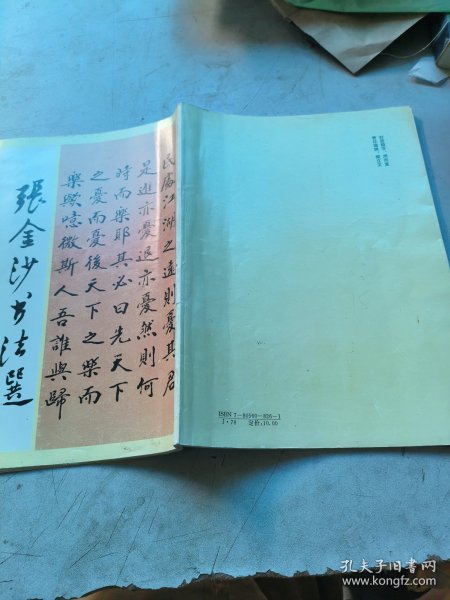 張金沙书法選
民處江湖之遠則憂其君
是進亦憂退亦憂然則何
時而樂耶其必曰先天下
之憂而憂後天下之樂而
樂歟噫微斯人吾誰與歸
ISBN 7-80560-826-1
J·78 定价:10.00
孔夫子旧书网
www.kongfz.com